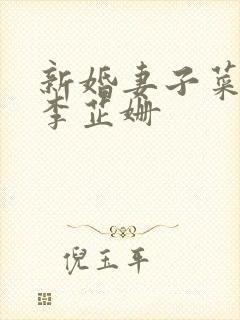 新婚妻子菜
李芷姗
倪玉平